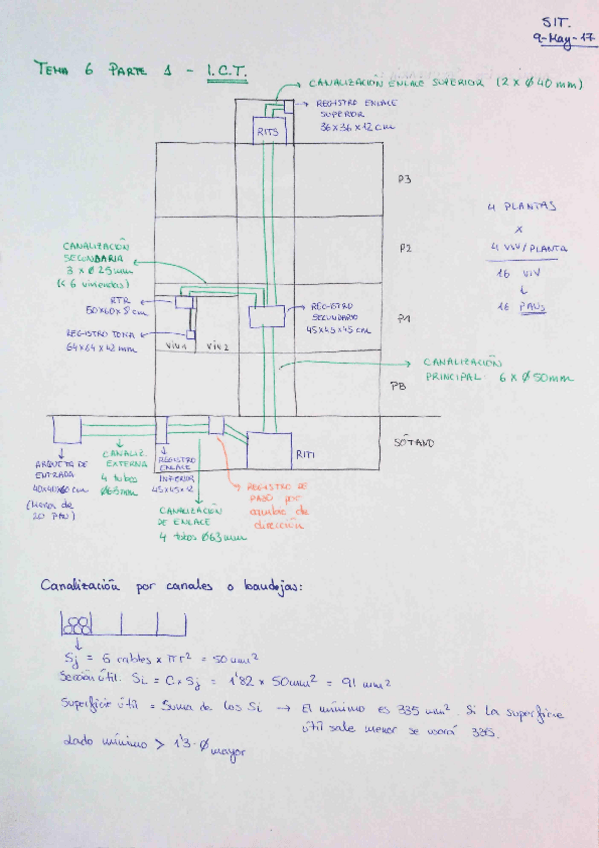 SIT.
9-May-17
TEMA 6 PARTE 1 - I.C.T.
CANALIZACIÓN ENLACE SUPERIOR (2 x Ø 40 mm)
REGISTRO ENLACE
SUPERIOR
36x36x12 cm
RITS
P3
4 PLANTAS
x
4 VIV/PLANTA
16 VIV
↓
16 PAUS
P2
CANALIZACIÓN
SECUNDARIA
3 x Ø 25 mm
(< 6 viviendas)
RTR
50x60x8 cm
REGISTRO TOMA
64x64x42 mm
VIV1
VIV2
REGISTRO
SECUNDARIO
45x45x45 cm
P1
CANALIZACIÓN
PRINCIPAL: 6 x Ø 50mm
PB
SÓTANO
RITI
ARQUETA DE
ENTRADA
40x40x60 cm
(Menos de
20 PAU)
CANALIZ.
EXTERNA
4 tubos
Ø63mm
REGISTRO
ENLACE
INFERIOR
45x45x12
CANALIZACIÓN
DE ENLACE
4 tubos Ø63mm
REGISTRO DE
PASO por
cambio de
dirección
Canalización por canales o bandejas:
Sj = 6 cables x πr² = 50 mm²
Sección útil. Si = C x Sj = 1'82 x 50mm² = 91 mm²
Superficie útil = Suma de los Si → El mínimo es 335 mm². Si la superficie
útil sale menor se usará 335.
Lado mínimo > 1'3·Ø mayor